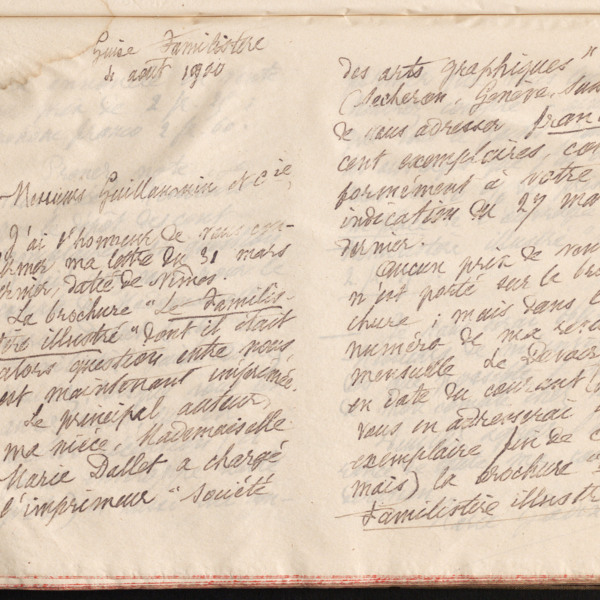 Guise Familistère
4 août 1900
Messieurs Guillaumin et Cie,
J'ai l'honneur de vous con-
firmer ma lettre du 31 mars
dernier, datée de Nîmes.
La brochure "Le Familis-
tère illustré" dont il était
alors question entre nous
est maintenant imprimée.
Le principal auteur,
ma nièce, Mademoiselle
Marie Dallet a chargé
l'imprimeur "Société
des arts graphiques"
(Sécheron, Genève, Suis
de vous adresser fran
cent exemplaires, con
formément à votre
indication du 27 ma
dernier.
Aucun prix de ven
n'est porté sur la bro
chure ; mais dans l
numéro de ma revu
mensuelle Le Devoir
en date du courant (
vous en adresserai
exemplaire fin de c
mais) la brochure "
Familistère illustr